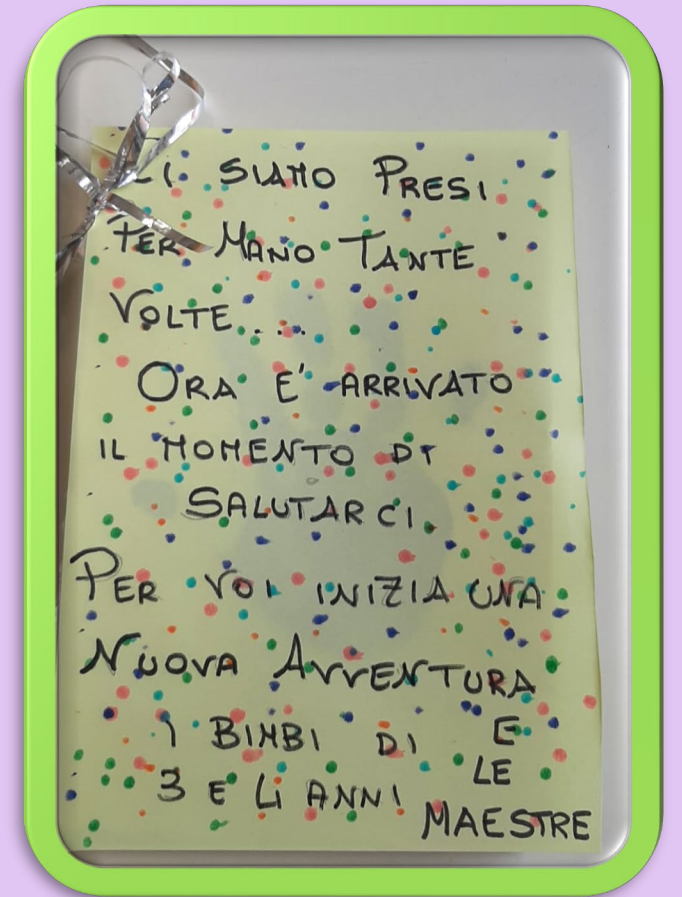 CI SIAMO PRESI
PER MANO TANTE
VOLTE...
ORA E' ARRIVATO
IL MOMENTO DI
SALUTARCI.
PER VOI INIZIA UNA
NUOVA AVVENTURA
I BIMBI DI
3 E 4 ANNI
E
LE
MAESTRE